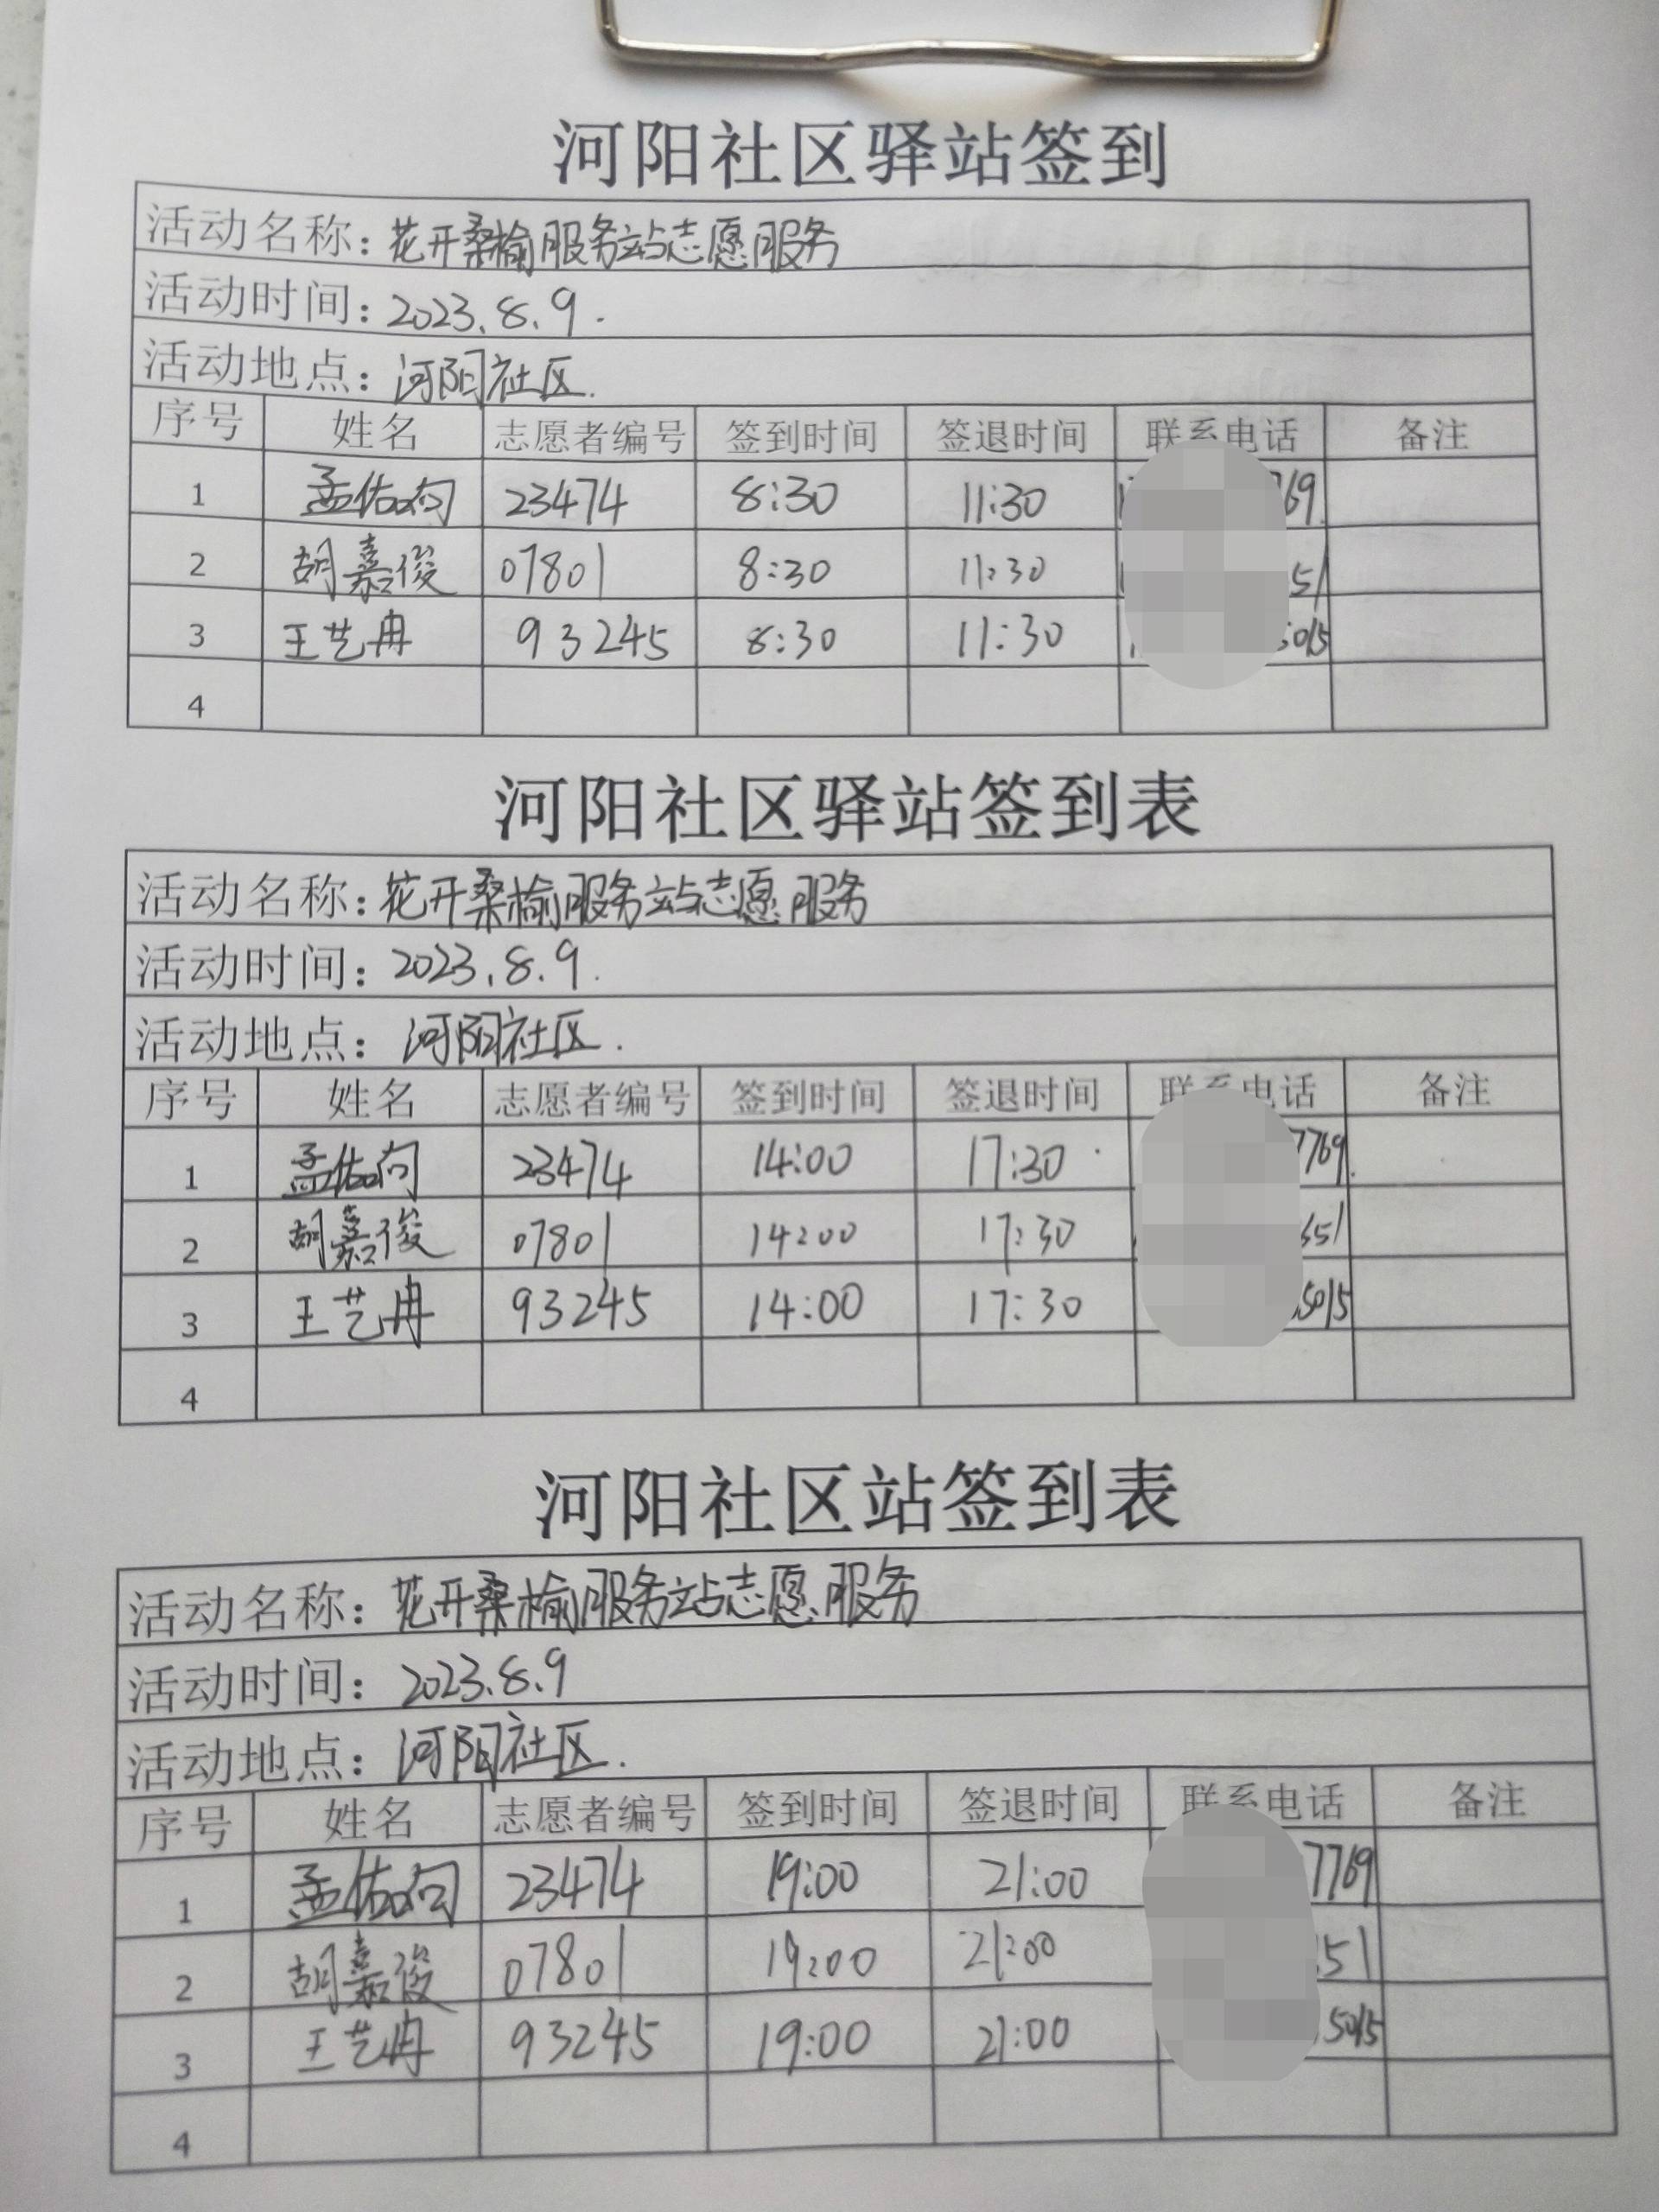 河阳社区驿站签到
活动名称：花开桑榆服务站志愿服务
活动时间：2023.8.9.
活动地点：河阳社区.
序号 姓名 志愿者编号 签到时间 签退时间 联系电话 备注
1 孟佑向 23474 8:30 11:30 769.
2 胡嘉俊 07801 8:30 11:30 51
3 王艺冉 93245 8:30 11:30 5015
4
河阳社区驿站签到表
活动名称：花开桑榆服务站志愿服务
活动时间：2023.8.9.
活动地点：河阳社区.
序号 姓名 志愿者编号 签到时间 签退时间 联系电话 备注
1 孟佑向 23474 14:00 17:30 7769.
2 胡嘉俊 07801 14:00 17:30 651
3 王艺冉 93245 14:00 17:30 5015
4
河阳社区站签到表
活动名称：花开桑榆服务站志愿服务
活动时间：2023.8.9
活动地点：河阳社区.
序号 姓名 志愿者编号 签到时间 签退时间 联系电话 备注
1 孟佑向 23474 19:00 21:00 7769
2 胡嘉俊 07801 19:00 21:00 51
3 王艺冉 93245 19:00 21:00 5015
4